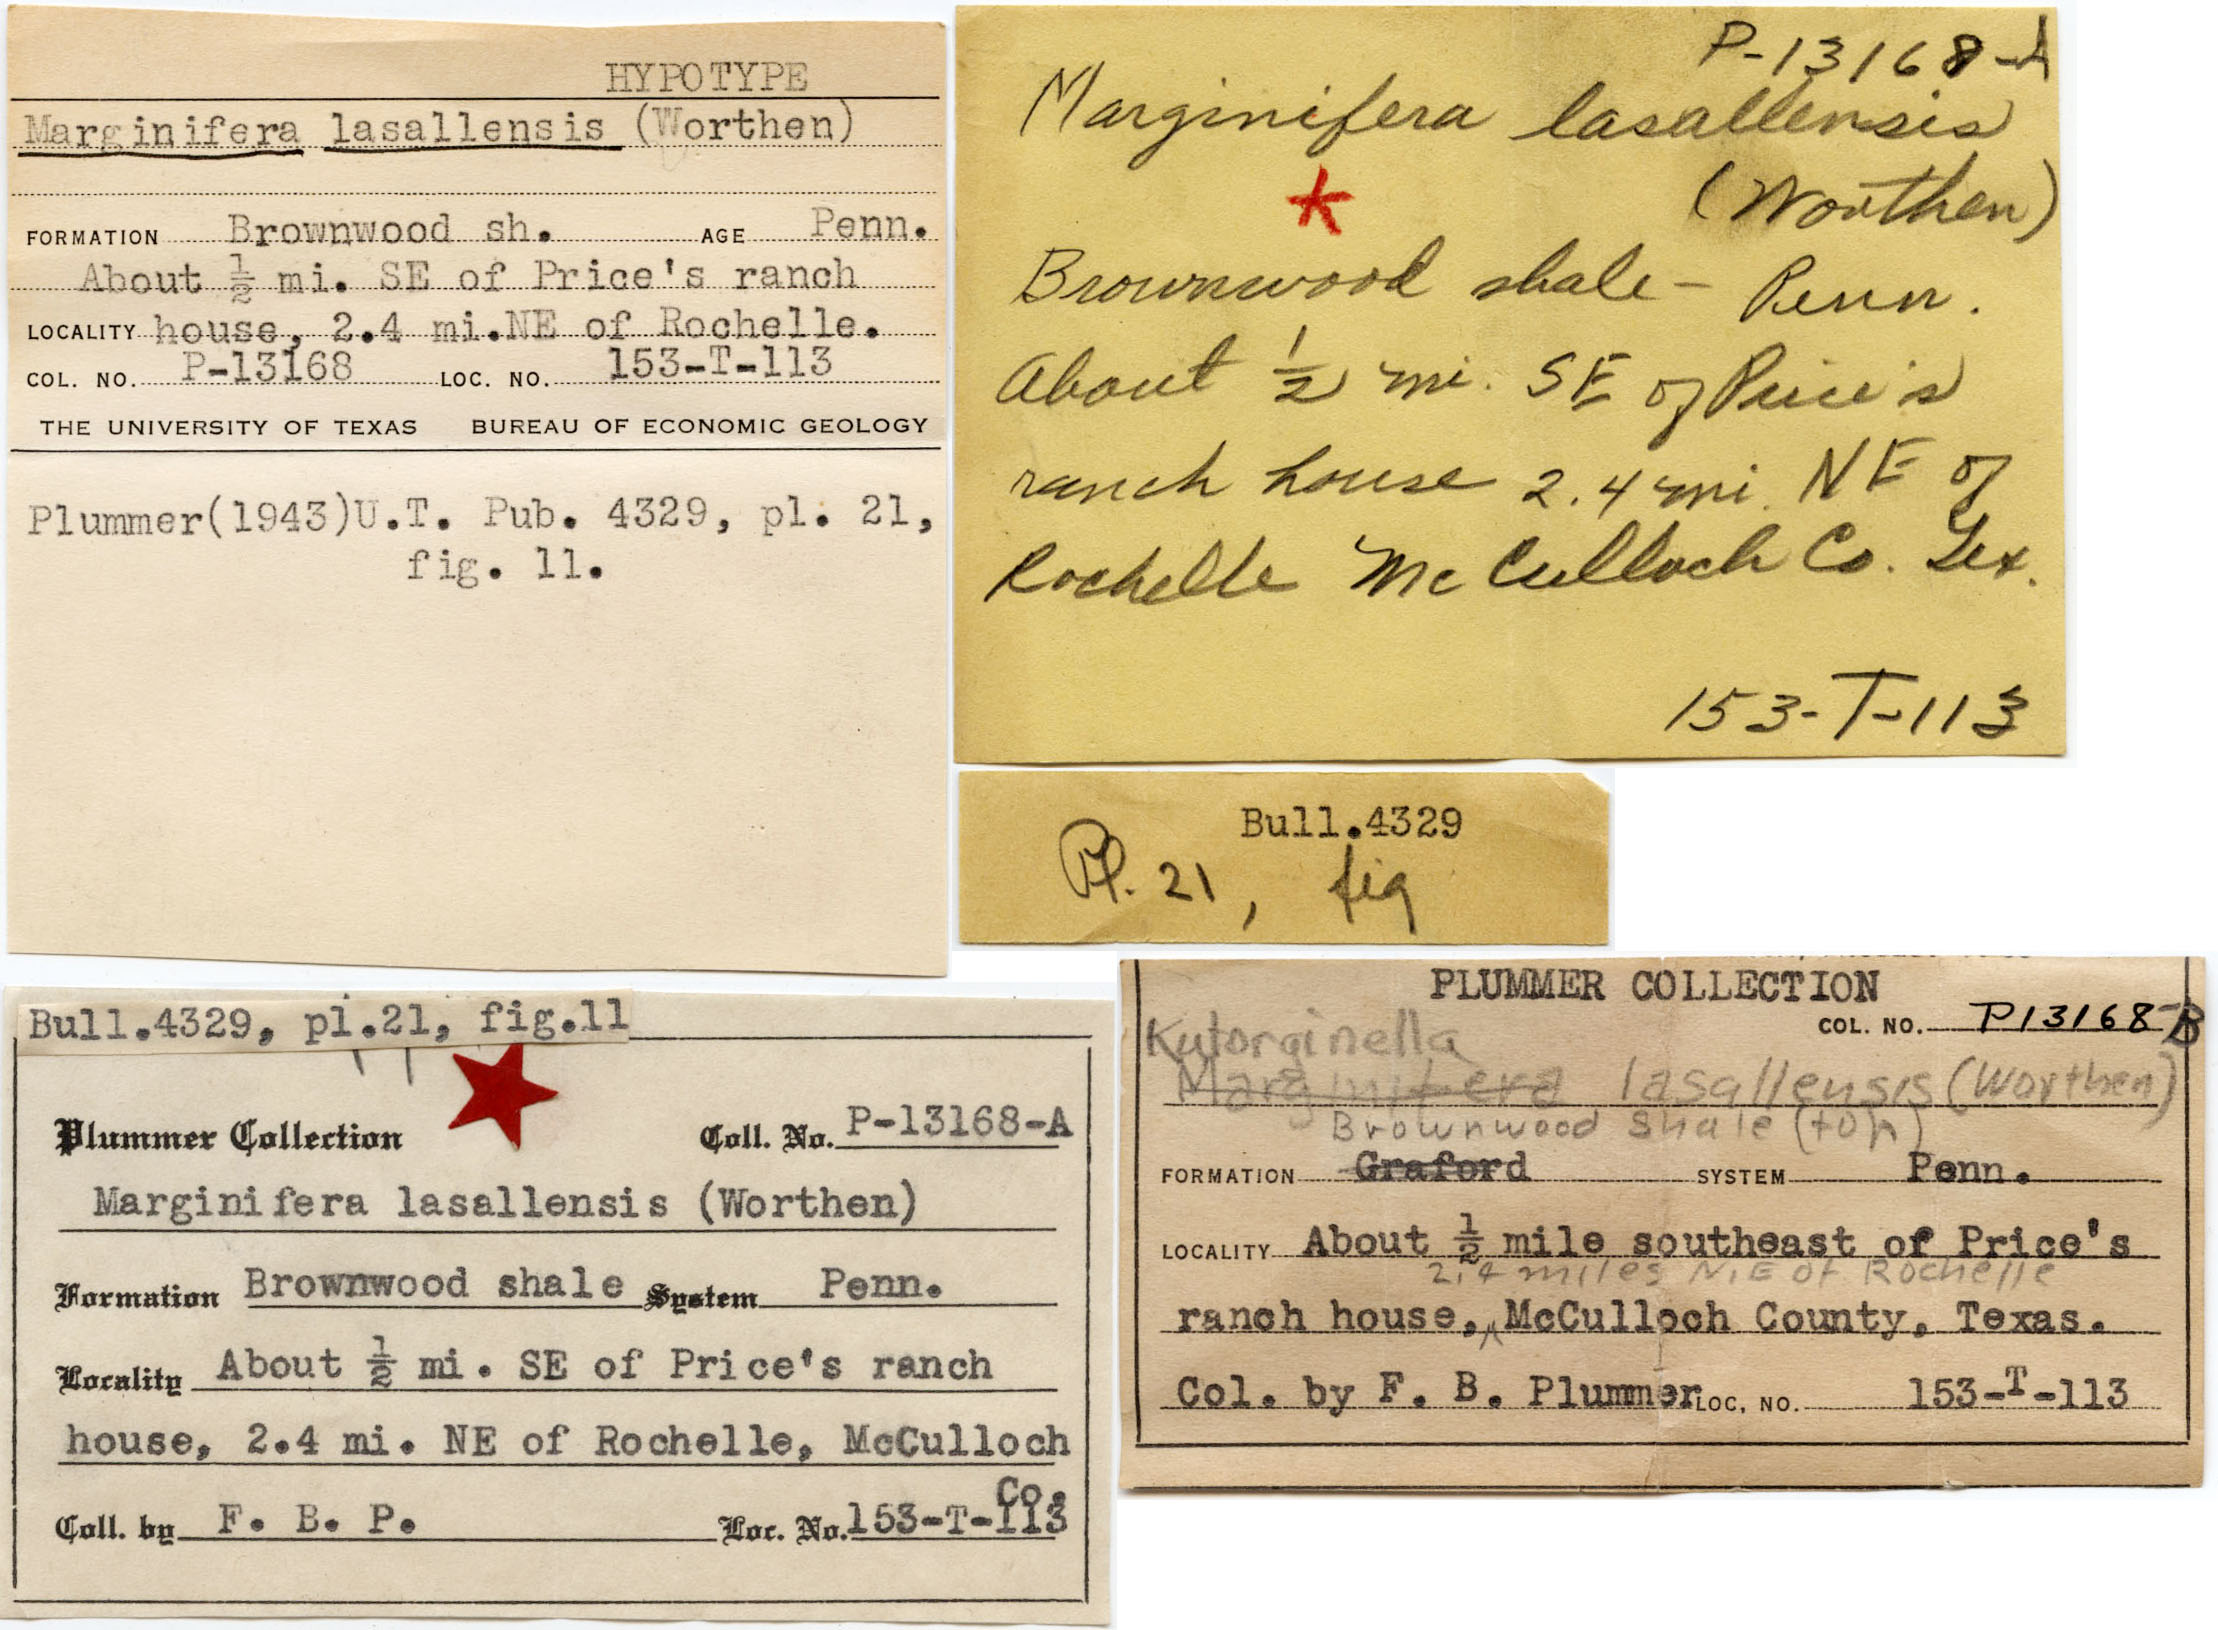 HYPOTYPE
Marginifera lasallensis (Worthen)
FORMATION Brownwood sh. AGE Penn.
About ½ mi. SE of Price's ranch
LOCALITY house, 2.4 mi.NE of Rochelle.
COL. NO. P-13168 LOC. NO. 153-T-113
THE UNIVERSITY OF TEXAS BUREAU OF ECONOMIC GEOLOGY
Plummer(1943)U.T. Pub. 4329, pl. 21,
fig. 11.
P-13168-A
Marginifera lasallensis
*
(Worthen)
Brownwood shale - Penn.
About ½ mi. SE of Price's
ranch house 2.4 mi. NE of
Rochelle McCulloch Co. Tex.
153-T-113
Bull.4329
Pl. 21, fig
Bull.4329, pl.21, fig.11
Plummer Collection Coll. No. P-13168-A
Marginifera lasallensis (Worthen)
Formation Brownwood shale System Penn.
Locality About ½ mi. SE of Price's ranch
house, 2.4 mi. NE of Rochelle, McCulloch
Co.
Coll. by F. B. P. Loc. No. 153-T-113
PLUMMER COLLECTION
COL. NO. P13168-B
Kutorginella
Marginifera lasallensis (Worthen)
Brownwood Shale (top)
FORMATION Graford SYSTEM Penn.
LOCALITY About ½ mile southeast of Price's
2.4 miles N.E of Rochelle
ranch house, ^ McCulloch County, Texas.
Col. by F. B. Plummer LOC. NO. 153-T-113